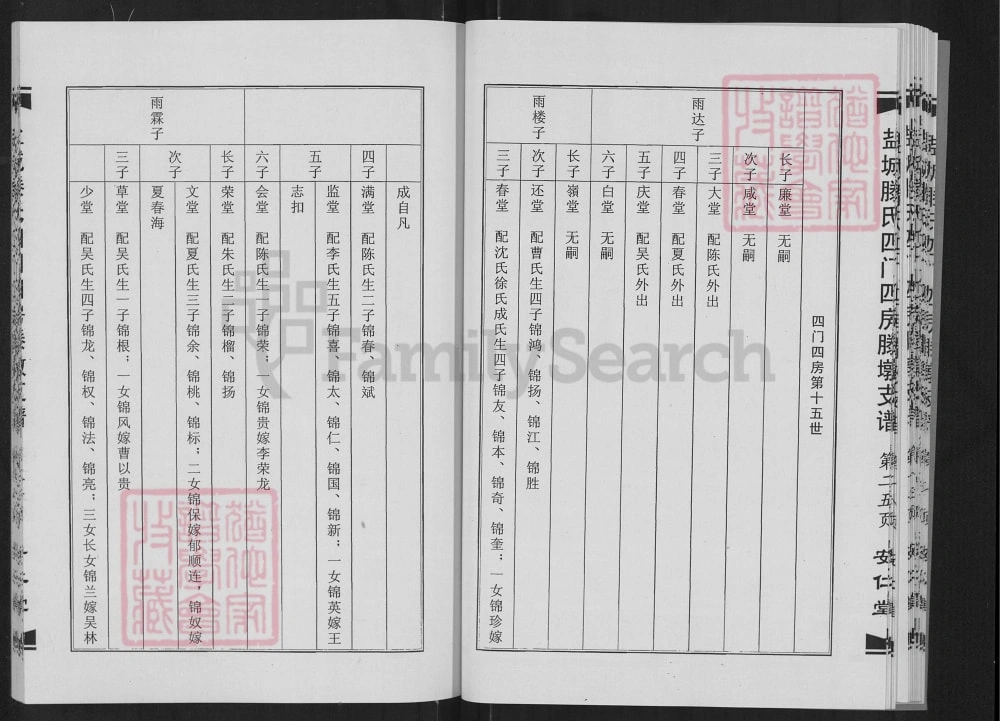 盐城滕氏四门四房滕墩支谱 第二五页 安仁堂
四门四房第十五世
雨达子
长子 廉堂 无嗣
次子 咸堂 无嗣
三子 大堂 配陈氏外出
四子 春堂 配夏氏外出
五子 庆堂 配吴氏外出
六子 白堂 无嗣
雨楼子
长子 嶺堂 无嗣
次子 还堂 配曹氏生四子锦鸿、锦扬、锦江、锦胜
三子 春堂 配沈氏徐氏成氏生四子锦友、锦本、锦奇、锦奎；一女锦珍嫁
成自凡
四子 满堂 配陈氏生二子锦春、锦斌
五子 监堂 配李氏生五子锦喜、锦太、锦仁、锦国、锦新；一女锦英嫁王
志扣
六子 会堂 配陈氏生一子锦荣；一女锦贵嫁李荣龙
雨霖子
长子 荣堂 配朱氏生二子锦榴、锦扬
次子 文堂 配夏氏生三子锦余、锦桃、锦标；二女锦保嫁郁顺连，锦奴嫁
夏春海
三子 草堂 配吴氏生一子锦根；一女锦风嫁曹以贵
少堂 配吴氏生四子锦龙、锦权、锦法、锦亮；三女长女锦兰嫁吴林
FamilySearch